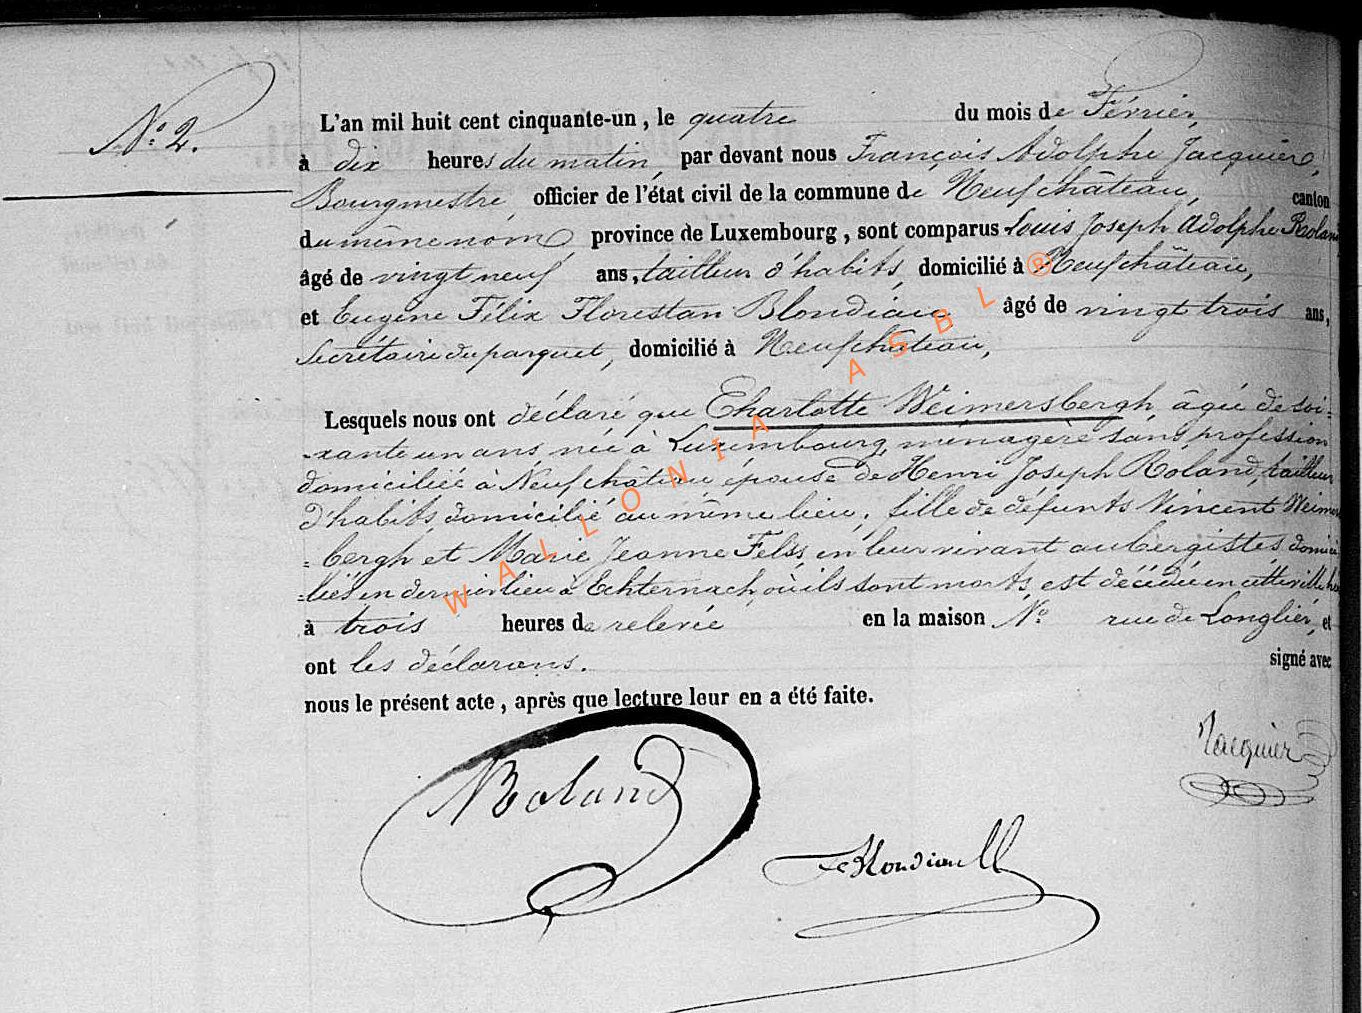 N.º 2.
L'an mil huit cent cinquante-un, le quatre du mois de Février,
à dix heures du matin, par devant nous François Adolphe Jacquier,
Bourgmestre, officier de l'état civil de la commune de Neufchâteau, canton
du même nom, province de Luxembourg, sont comparus Louis Joseph Adolphe Roland
âgé de vingt neuf ans, tailleur d'habits, domicilié à Neufchâteau,
et Eugène Félix Florestan Blondiau âgé de vingt trois ans,
Secrétaire du parquet, domicilié à Neufchâteau,
Lesquels nous ont déclaré que Charlotte Weimersbergh, âgée de soi=
-xante un ans née à Luxembourg, ménagère sans profession
domiciliée à Neufchâteau épouse de Henri Joseph Roland, tailleur
d'habits, domicilié au même lieu, fille de défunts Vincent Weimers
=bergh et Marie Jeanne Felss, en leur vivant aubergistes, domici
=liés en dernier lieu à Echternach, où ils sont morts, est décédée en cette ville
à trois heures de relevée en la maison N.º rue de Longlier, et
ont les déclarans. signé avec
nous le présent acte, après que lecture leur en a été faite.
Jacquier
Roland
WALLONIA ASBL ®